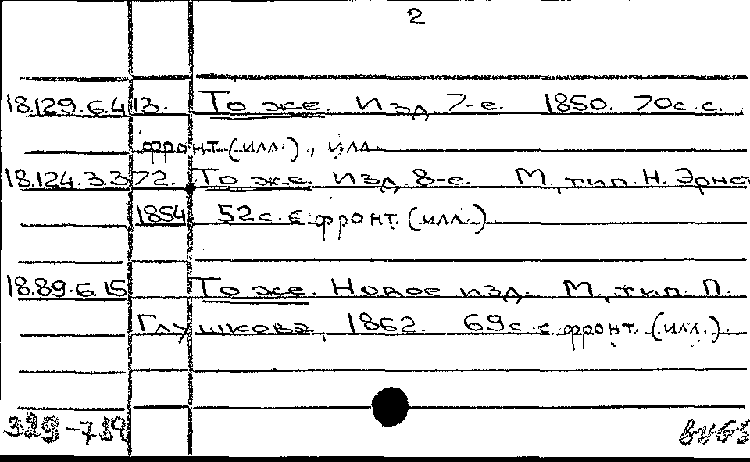 2
18.129.6.413. То же. Изд 7-е. 1850. 70с. с.
фронт. (илл.), илл
18.124.3.372. То же. Изд 8-е. М, тип. Н. Эрнес
1854 52с. с фронт. (илл.)
18.89.6.15 То же. Новое изд. М, тип. П.
Глушкова, 1862. 69с. с фронт. (илл.)